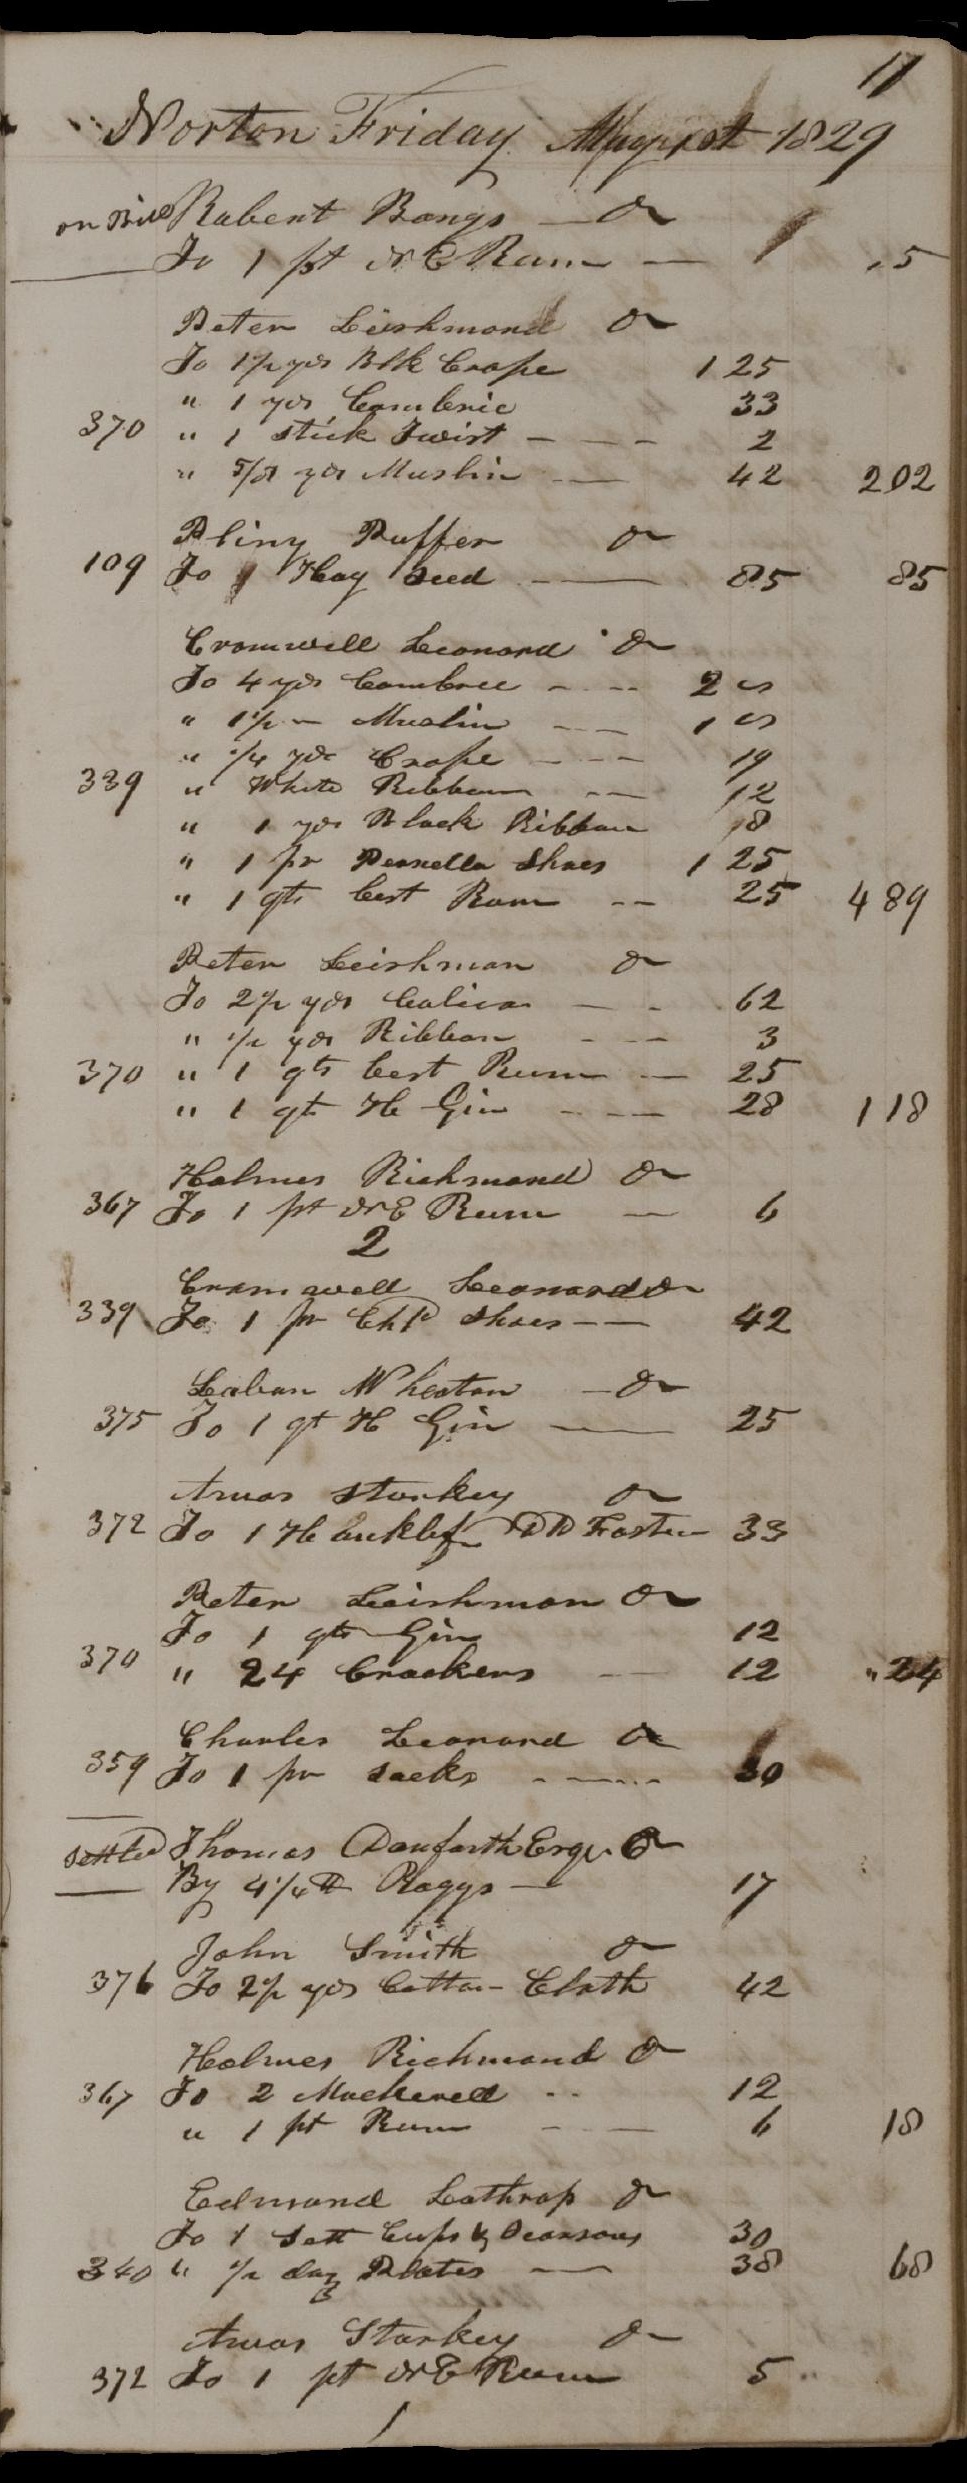 17
Norton Friday May 1st 1829
on Bill Robert Bangs Dr
To 1 pt N E Rum .5
Peter Leishmond Dr
To 1 1/2 yds Blk Crape 1 25
" 1 yds Cambric 33
370 " 1 stick Twist 2
" 5/8 yds Muslin 42 202
Pliny Puffer Dr
109 To Hay Seed 85 85
Cromwell Leonard Dr
To 4 yds Cambric 2 00
" 1 1/2 " Muslin 1 00
" 1/4 yds Crape 19
339 " White Ribbon 12
" 1 yds Black Ribbon 18
" 1 pr Prunella Shoes 1 25
" 1 qts best Rum 25 4 89
Peter Leishman Dr
To 2 1/2 yds Calico 62
" 1/2 yds Ribbon 3
370 " 1 qts best Rum 25
" 1 qt H Gin 28 1 18
Holmes Richmond Dr
367 To 1 pt N E Rum 6
2
Cromwell Leonard Dr
339 To 1 pr Chld Shoes 42
Laban Wheaton Dr
375 To 1 qt H Gin 25
Amos Starkey Dr
372 To 1 Hankkf DD Foster 33
Peter Leishman Dr
To 1 qts Gin 12
370 " 24 Crackers 12 " 24
Charles Leonard Dr
359 To 1 pr Socks 30
Settled Thomas Danforth Esqr Cr
By 4 1/4 lb Raggs 17
John Smith Dr
376 To 2 1/2 yds Cotton Cloth 42
Holmes Richmond Dr
367 To 2 Mackerell 12
" 1 pt Rum 6 18
Edmond Lothrop Dr
To 1 Sett Cups & Scarsons 30
340 " 1/2 doz Plates 38 68
Amos Starkey Dr
372 To 1 pt N E Rum 5
1